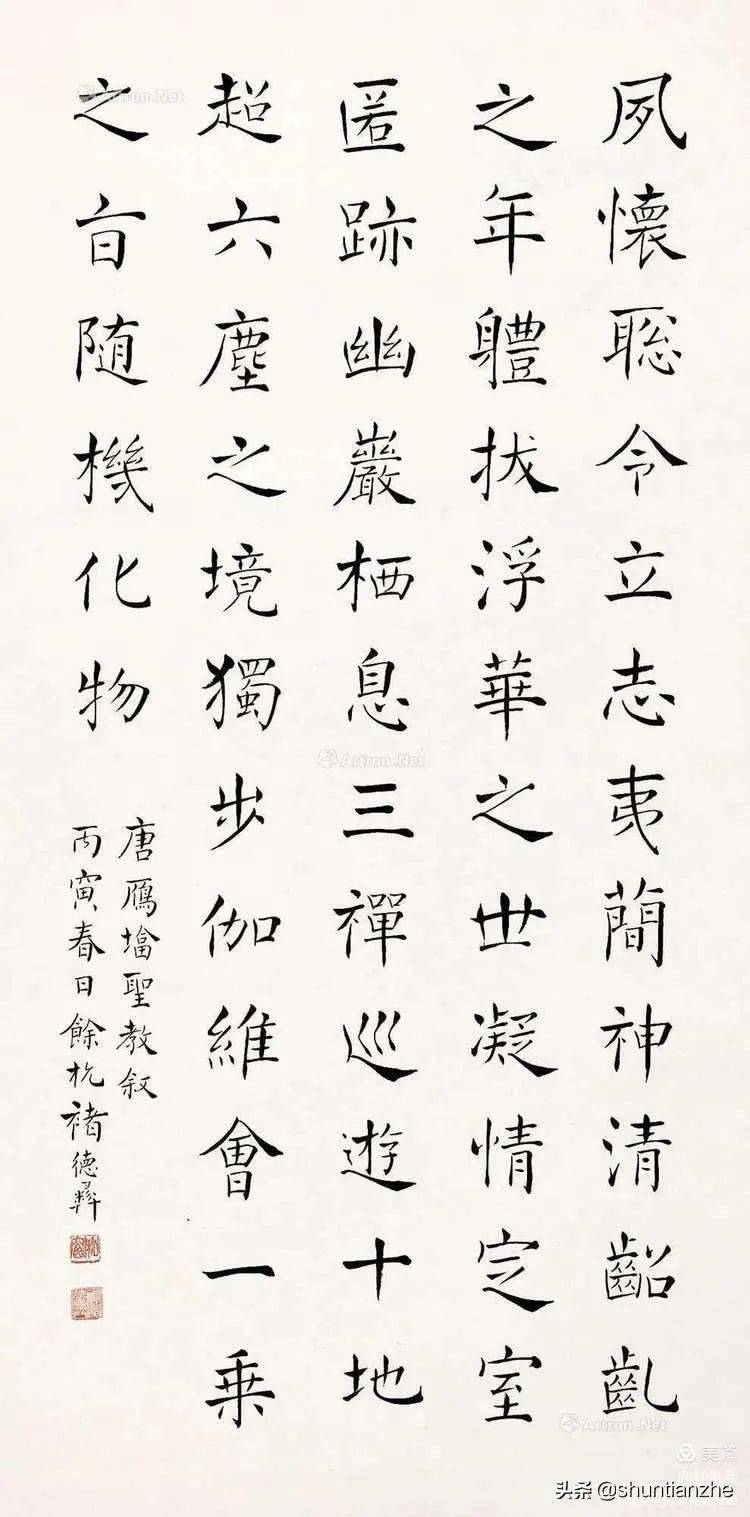 夙懷聡令立志夷簡神清齠齓
之年體拔浮華之世凝情定室
匿跡幽巖栖息三禪巡遊十地
超六塵之境獨步伽維會一乘
之旨随機化物
唐鴈墖聖教叙
丙寅春日餘杭褚德彝
Artron.Net
Artron.Net
Artron.Net
美篇
头条@shuntianzhe